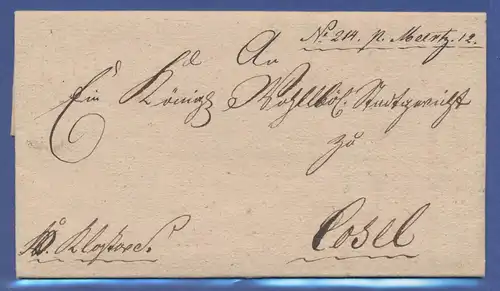 No 214. p. Maertz. 12.
An
Ein Königl Wohllöbl. Stadtgericht
zu
Cosel